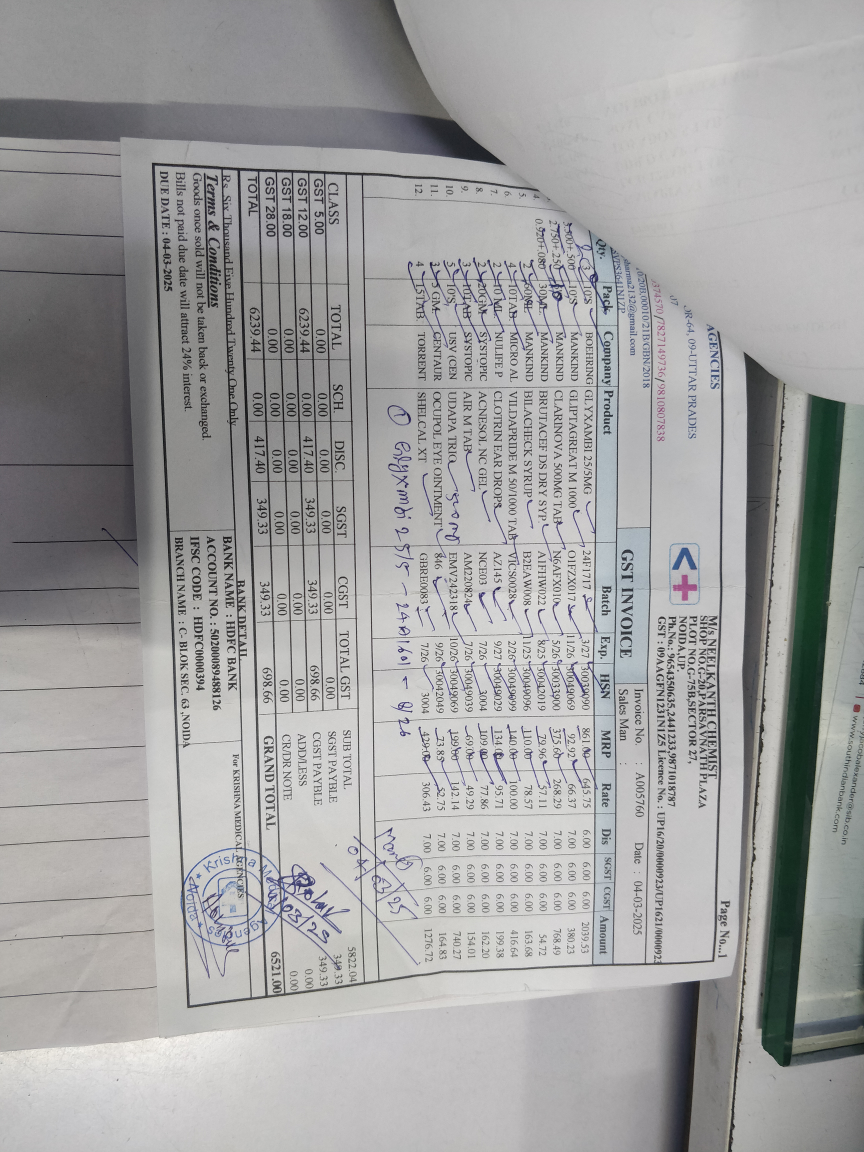 Page No...1
AGENCIES
OR-64, 09-UTTAR PRADES
07
374570/7827149736/9810807838
/20B,00010/21B/GBN/2018
pharma2132@gmail.com
M/s NEELKANTH CHEMIST
SHOP NO.G-20 PARSAVNATH PLAZA
PLOT NO.G-75B,SECTOR 27,
NOIDA,UP.
Ph.No.: 9654350635,2441233,9871018787
GST : 09AAGFN1231N1Z5 Licence No.: UP16/20/0000923/UP1621/0000923
GST INVOICE
Invoice No. : A005760 Date : 04-03-2025
Sales Man :
Qty. Pack Company Product Batch Exp. HSN MRP Rate Dis SGST CGST Amount
3 10'S BOEHRING GLYXAMBI 25/5MG 24F1717 3/27 30039090 861.00 645.75 6.00 6.00 6.00 2039.53
10'S MANKIND GLIPTAGREAT M 1000 O1FZX017 11/26 30049069 92.92 66.37 7.00 6.00 6.00 380.23
2.750+.250 MANKIND CLARINOVA 500MG TAB N6AFX010 5/26 30033900 375.60 268.29 7.00 6.00 6.00 768.49
4. 0.920+.080 30ML MANKIND BRUTACEF DS DRY SYP A1FHW022 8/25 30042019 79.96 57.11 7.00 6.00 6.00 54.72
5. 2 MANKIND BILACHECK SYRUP B2EAW008 11/25 30049096 110.00 78.57 7.00 6.00 6.00 163.68
6. 4 10TAB MICRO AL VILDAPRIDE M 50/1000 TAB VICS0028 2/26 30049099 140.00 100.00 7.00 6.00 6.00 416.64
7. 2 10 ML NULIFE P CLOTRIN EAR DROPS AZ145 9/27 30049029 134.00 95.71 7.00 6.00 6.00 199.38
8. 2 20GM SYSTOPIC ACNESOL NC GEL NCE03 7/26 3004 109.00 77.86 7.00 6.00 6.00 162.20
9. 3 10TAB SYSTOPIC AIR M TAB AM220824 7/26 30049039 69.00 49.29 7.00 6.00 6.00 154.01
10. 5 10'S USV (CEN UDAPA TRIO EMV242318 10/26 30049069 199.00 142.14 7.00 6.00 6.00 740.27
11. 3 5 GM CENTAUR OCUPOL EYE OINTMENT 846 9/26 30042049 73.85 52.75 7.00 6.00 6.00 164.83
12. 4 15TAB TORRENT SHELCAL XT GBRE0083 7/26 3004 429.00 306.43 7.00 6.00 6.00 1276.72
① Glyxmbi 25/5 - 24D1601 - 8/26
04/03/25
CLASS TOTAL SCH. DISC. SGST CGST TOTAL GST
GST 5.00 0.00 0.00 0.00 0.00 0.00 0.00
GST 12.00 6239.44 0.00 417.40 349.33 349.33 698.66
GST 18.00 0.00 0.00 0.00 0.00 0.00 0.00
GST 28.00 0.00 0.00 0.00 0.00 0.00 0.00
TOTAL 6239.44 0.00 417.40 349.33 349.33 698.66
SUB TOTAL 5822.04
SGST PAYBLE 349.33
CGST PAYBLE 349.33
ADD/LESS 0.00
CR/DR NOTE 0.00
GRAND TOTAL 6521.00
Rs. Six Thousand Five Hundred Twenty One Only
Terms & Conditions
Goods once sold will not be taken back or exchanged.
Bills not paid due date will attract 24% interest.
DUE DATE : 04-03-2025
BANK DETAIL
BANK NAME : HDFC BANK
ACCOUNT NO. : 50200089488126
IFSC CODE : HDFC0000394
BRANCH NAME : C- BLOK SEC. 63 ,NOIDA
For KRISHNA MEDICAL AGENCIES
Krishna Medical Agencies
Noida
www.southindianbank.com